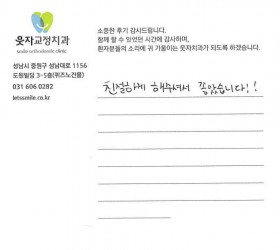 소중한 후기 감사드립니다.
함께 할 수 있었던 시간에 감사하며,
환자분들의 소리에 귀 기울이는 웃자치과가 되도록 하겠습니다.
웃자교정치과
smile orthodontic clinic
성남시 중원구 성남대로 1156
도원빌딩 3-5층(퀴즈노건물)
031 606 0282
letssmile.co.kr
친절하게 해주셔서 좋았습니다!!